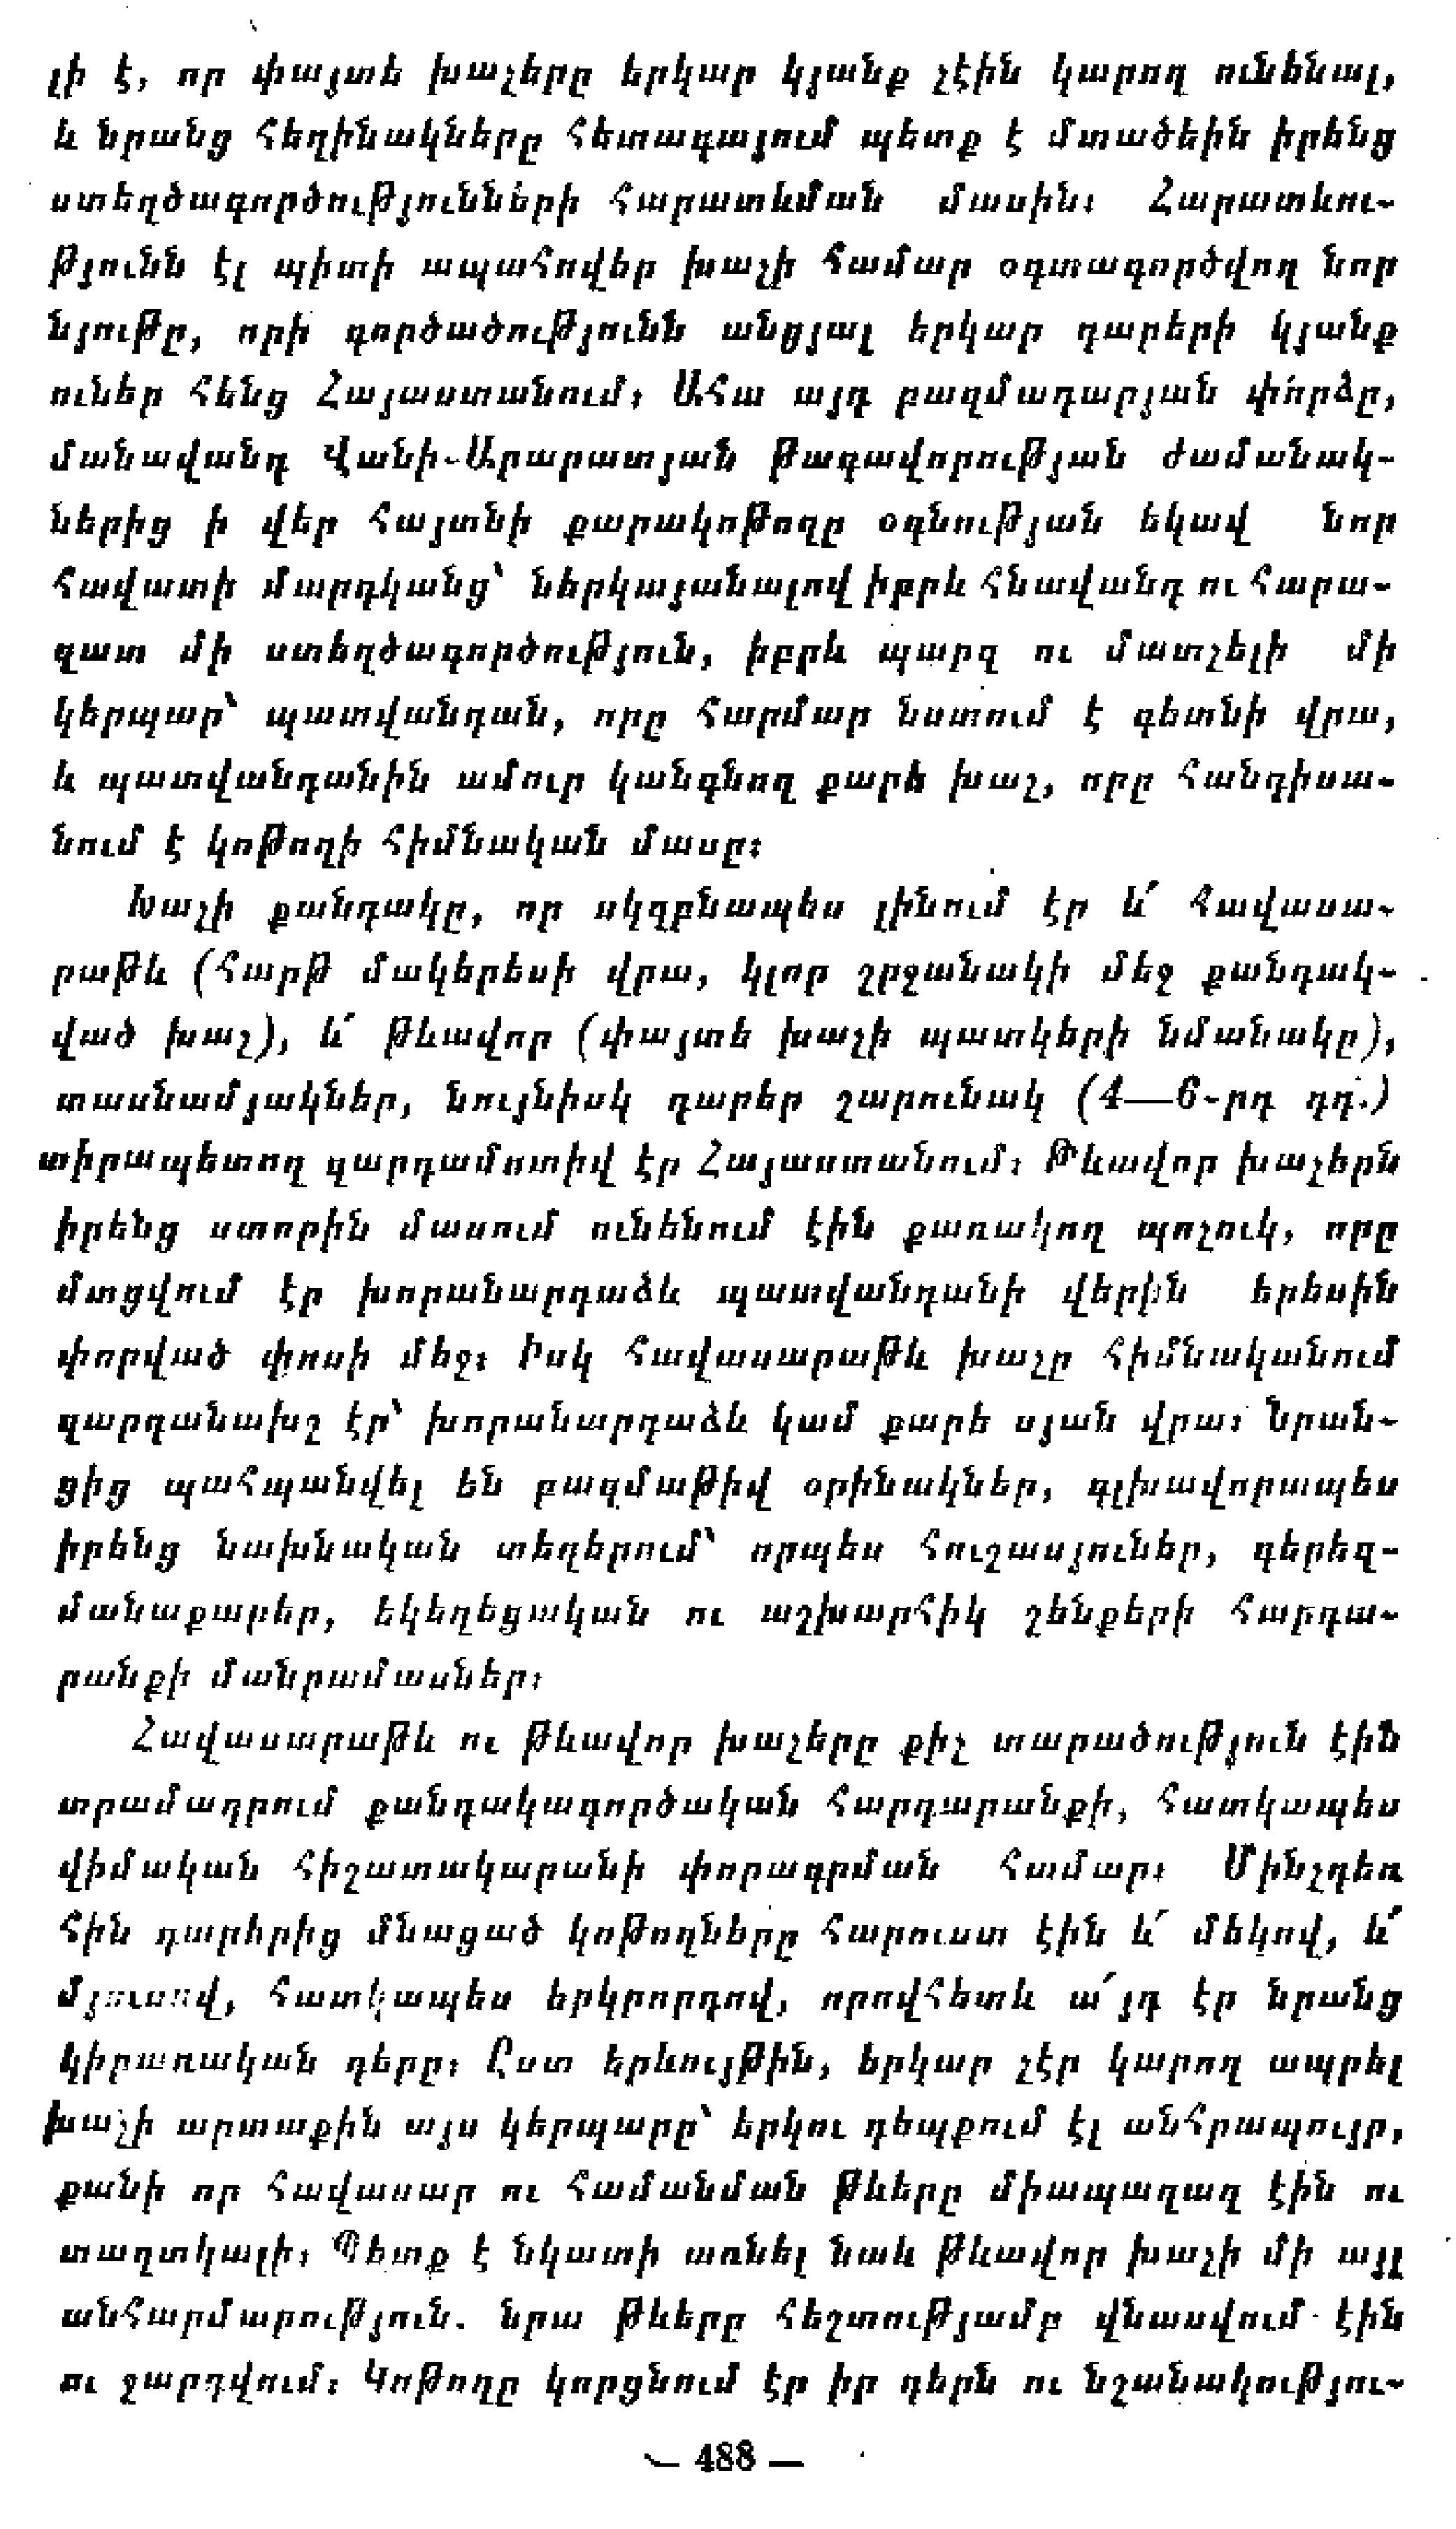 լի է, որ փայտե խաչերը երկար կյանք չէին կարող ունենալ,
և նրանց հեղինակները հետագայում պետք է մտածեին իրենց
ստեղծագործությունների հարատևման մասին։ Հարատևու-
թյունն էլ պիտի ապահովեր խաչի համար օգտագործվող նոր
նյութը, որի գործածությունն անցյալ երկար դարերի կյանք
ուներ հենց Հայաստանում։ Ահա այդ բազմադարյան փորձը,
մանավանդ Վանի-Արարատյան թագավորության ժամանակ-
ներից ի վեր հայտնի քարակոթողը օգնության եկավ նոր
հավատի մարդկանց՝ ներկայանալով իբրև հնավանդ ու հարա-
զատ մի ստեղծագործություն, իբրև պարզ ու մատչելի մի
կերպար՝ պատվանդան, որը հարմար նստում է գետնի վրա,
և պատվանդանին ամուր կանգնող քարե խաչ, որը հանդիսա-
նում է կոթողի հիմնական մասը։
Խաչի քանդակը, որ սկզբնապես լինում էր և՛ հավասա-
րաթև (հարթ մակերեսի վրա, կլոր շրջանակի մեջ քանդակ-
ված խաչ), և՛ թևավոր (փայտե խաչի պատկերի նմանակը),
տասնամյակներ, նույնիսկ դարեր շարունակ (4—6-րդ դդ.)
տիրապետող զարդամոտիվ էր Հայաստանում։ Թևավոր խաչերն
իրենց ստորին մասում ունենում էին քառակող պոչուկ, որը
մտցվում էր խորանարդաձև պատվանդանի վերին երեսին
փորված փոսի մեջ։ Իսկ հավասարաթև խաչը հիմնականում
զարդանախշ էր՝ խորանարդաձև կամ քարե սյան վրա։ Նրան-
ցից պահպանվել են բազմաթիվ օրինակներ, գլխավորապես
իրենց նախնական տեղերում՝ որպես հուշասյուներ, գերեզ-
մանաքարեր, եկեղեցական ու աշխարհիկ շենքերի հարդա-
րանքի մանրամասներ։
Հավասարաթև ու թևավոր խաչերը քիչ տարածություն էին
տրամադրում քանդակագործական հարդարանքի, հատկապես
վիմական հիշատակարանի փորագրման համար։ Մինչդեռ
հին դարերից մնացած կոթողները հարուստ էին և՛ մեկով, և՛
մյուսով, հատկապես երկրորդով, որովհետև ա՛յդ էր նրանց
կիրառական դերը։ Ըստ երևույթին, երկար չէր կարող ապրել
խաչի արտաքին այս կերպարը՝ երկու դեպքում էլ անհրապույր,
քանի որ հավասար ու համանման թևերը միապաղաղ էին ու
տաղտկալի։ Պետք է նկատի առնել նաև թևավոր խաչի մի այլ
անհարմարություն. նրա թևերը հեշտությամբ վնասվում էին
ու ջարդվում։ Կոթողը կորցնում էր իր դերն ու նշանակությու-
— 488 —